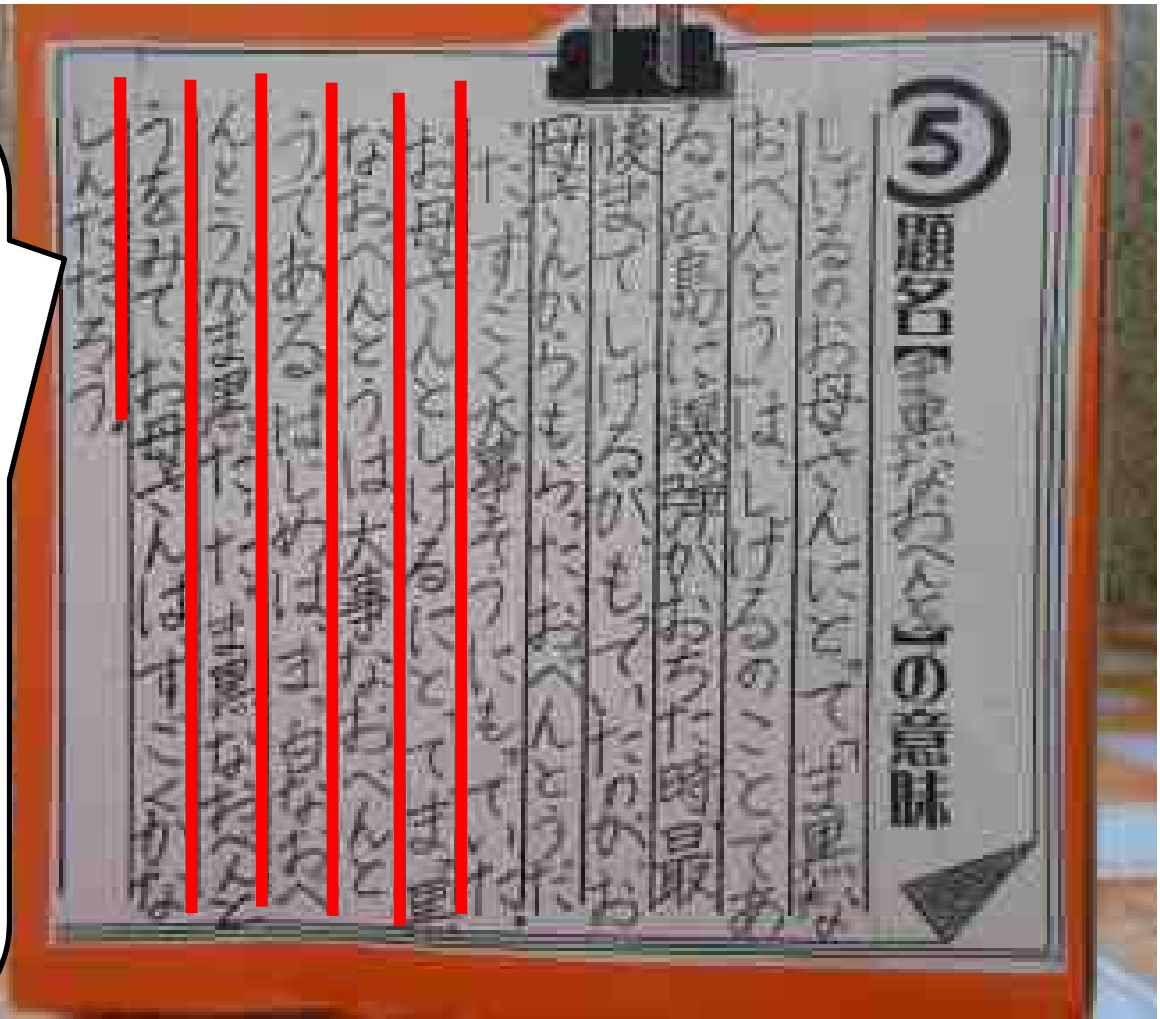 ⑤題名【真黒なおべんとう】の意味
しげるのお母さんにとって「真黒な
おべんとう」は、しげるのことであ
る。広島に原爆がおちた時最
後までしげるがもっていたのがお
母さんからもらったおべんとうだっ
た。すごく大事そうにもっていた。
お母さんとしげるにとってま黒
なおべんとうは大事なおべんと
うである。はじめは、ま白なおべ
んとうがま黒だった。ま黒なおべんと
うをみて、お母さんはすごくかな
しんだだろう。